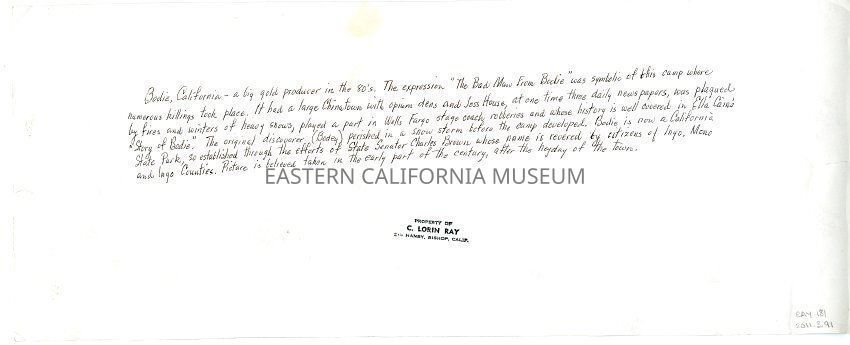 Bodie, California - a big gold producer in the 80's. The expression "The Bad Man From Bodie" was symbolic of this camp where
numerous killings took place. It had a large Chinatown with opium dens and Joss House, at one time three daily newspapers, was plagued
by fires and winters of heavy snows, played a part in Wells Fargo stage coach robberies and whose history is well covered in Ella Cain's
"Story of Bodie." The original discoverer (Bodey) perished in a snow storm before the camp developed. Bodie is now a California
State Park, so established through the efforts of State Senator Charles Brown whose name is revered by citizens of Inyo, Mono
and Inyo Counties. Picture is believed taken in the early part of the century, after the heyday of the town.
EASTERN CALIFORNIA MUSEUM
PROPERTY OF
C. LORIN RAY
HANBY, BISHOP, CALIF.
RAY-181
2011.3.91